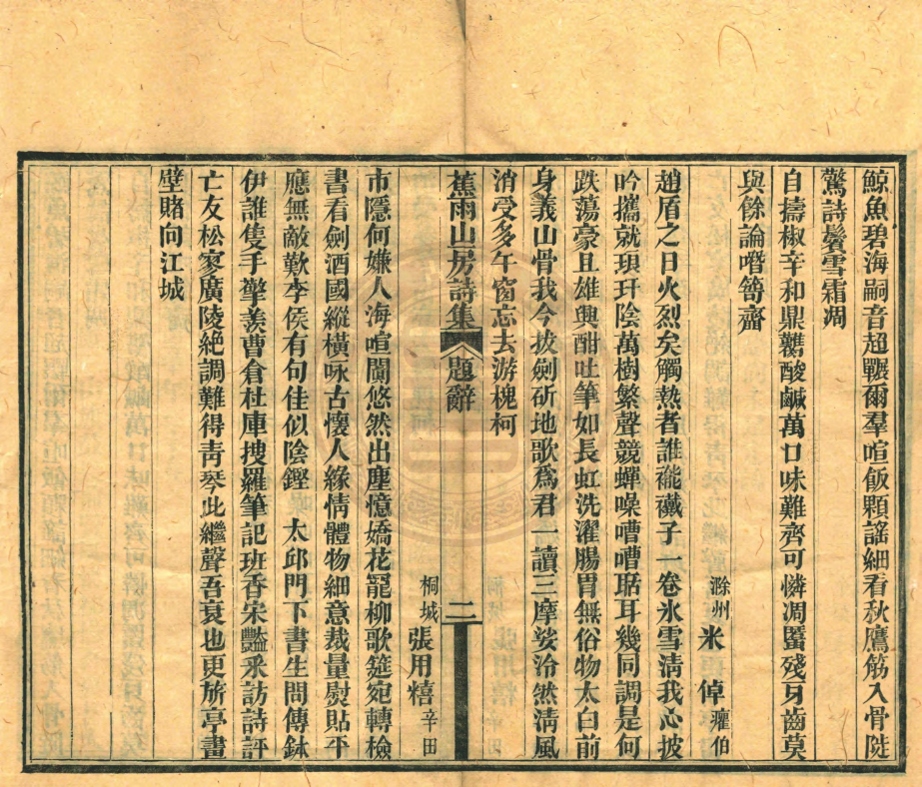 鯨魚碧海嗣音超囅爾羣喧飯顆謠細看秋鷹筋入骨陡
驚詩鬢雪霜凋
自擣椒辛和鼎鐫酸鹹萬口味難齊可憐凋匶殘牙齒莫
與餘論噆笴齏
滁州米倬癯伯
趙盾之日火烈矣觸熱者誰褦襶子一卷氷雪淸我心披
吟攜就琅玕陰萬樹繁聲競蟬噪嘈嘈琚耳幾同調是何
跌蕩豪且雄輿酣吐筆如長虹洗濯腸胃無俗物太白前
身義山骨我今拔劍斫地歌爲君一讀三摩娑泠然淸風
消受多午窗忘去游槐柯
蕉雨山房詩集 題辭 二
桐城張用糦辛田
市隱何嫌人海喧闐悠然出塵憶嬌花寵柳歌筵宛轉檢
書看劍酒國縱橫咏古懷人緣情體物細意裁量熨貼平
應無敵歎李侯有句佳似陰鏗 太邱門下書生問傳鉢
伊誰隻手擎羨曹倉杜庫搜羅筆記班香宋豔釆訪詩評
亡友松寥廣陵絕調難得靑琴此繼聲吾衰也更旂亭畫
壁賭向江城